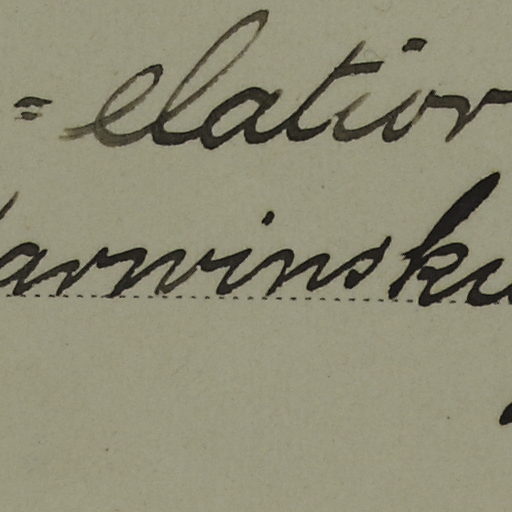 = elatior
arwinsku